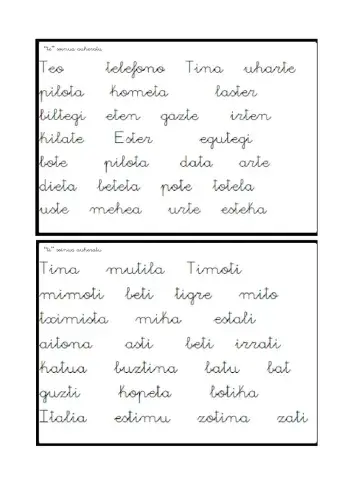 "te" soinua aukeratu
Teo telefono Tina uharte
pilota kometa laster
biltegi eten gazte irten
hilate Ester egutegi
bote pilota data arte
dieta beteta pote totela
uste mehea urte esteka
"ti" soinua aukeratu
Tina mutila Timoti
mimoti beti tigre mito
tximista mika estali
aitona asti beti irrati
katua buztina batu bat
guzti kopeta botika
Italia estimu zotina zati